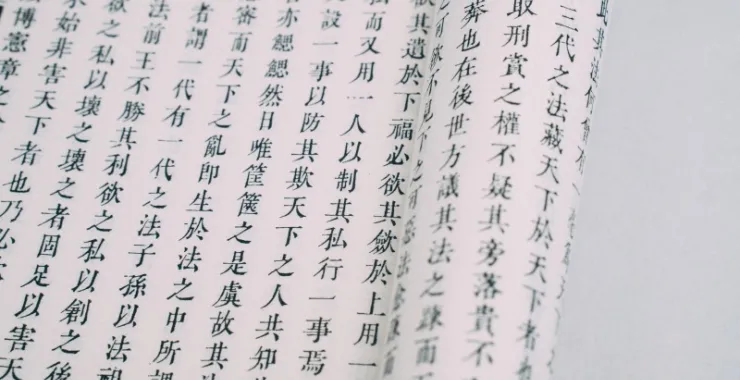 三代之法藏天下於天下者
取刑賞之權不疑其旁落貴不
葬也在後世方議其法之疎而
欲其遺於下福必欲其斂於上用一
私而又用一人以制其私行一事焉
設一事以防其欺天下之人共知
亦鰓鰓然日唯筐篋之是虞故其
密而天下之亂卽生於法之中所謂
者謂一代有一代之法子孫以法祖
法前王不勝其利欲之私以創之後
欲之私以壞之壞之者固足以害天
未始非害天下者也乃必
傳憲章之